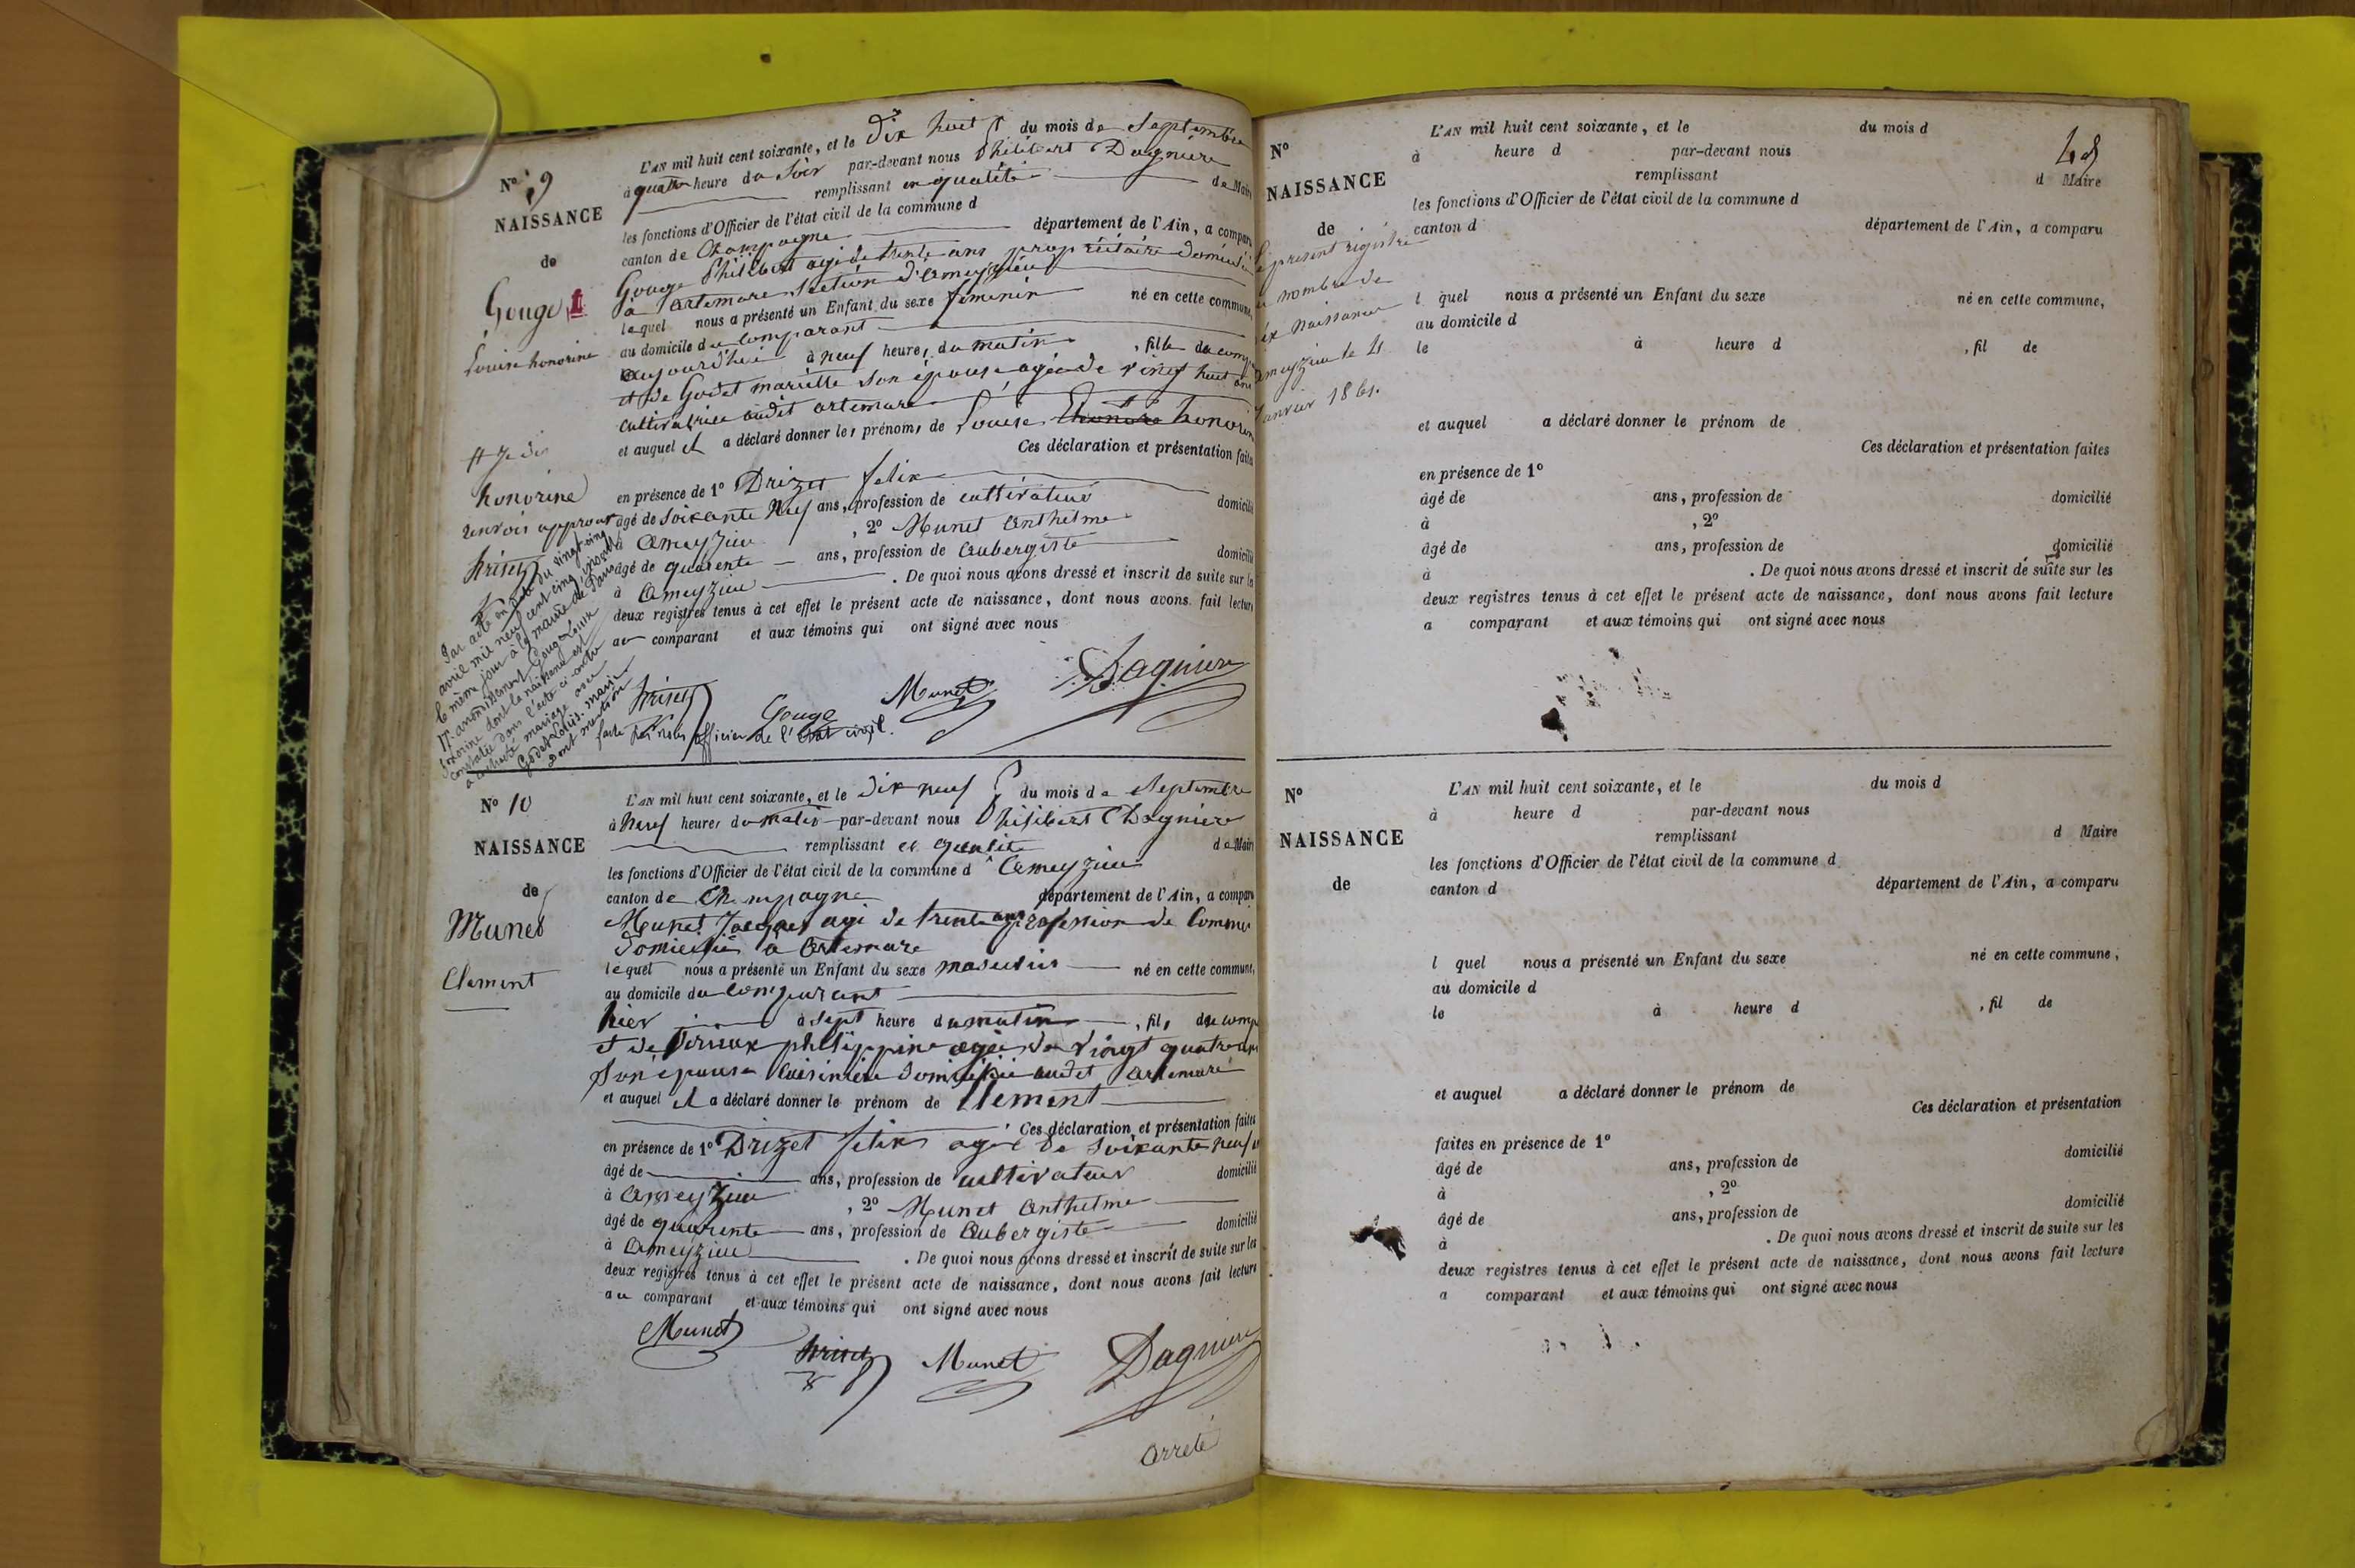 N° 9
NAISSANCE
de
Gouge
Louise honorine
L'AN mil huit cent soixante, et le Dix huit du mois de Septembre
à quatre heure du Soir par-devant nous Philibert Dagnière
remplissant en qualité de Maire
les fonctions d'Officier de l'état civil de la commune d
canton de Champagne département de l'Ain, a comparu
Gouge Philibert agé de trente ans propriétaire domicilié
à artemare section d'ameyzieu
lequel nous a présenté un Enfant du sexe féminin né en cette commune,
au domicile du comparant
aujourd'hui à neuf heure, du matin , fille du comp
et de Godet mariette son épouse agée de vingt huit ans
cultivatrice audit artemare
et auquel il a déclaré donner les prénoms de Louise honorine
Ces déclaration et présentation faites
en présence de 1° Drizet felix
âgé de soixante neuf ans, profession de cultivateur domicilié
à ameyzieu , 2° Munet Anthelme
âgé de quarente ans, profession de aubergiste domicilié
à ameyzieu . De quoi nous avons dressé et inscrit de suite sur les
deux registres tenus à cet effet le présent acte de naissance, dont nous avons fait lecture
au comparant et aux témoins qui ont signé avec nous
# Je dis
honorine
renvois approuvé
Par acte en date du vingt cinq
avril mil neuf cent cinq, inscrit
le même jour à la mairie de Paris
17e arrondissement Gouge Louise
honorine dont la naissance est
constatée dans l'acte ci-contre
a contracté mariage avec
Godet Louis Marie
Dont mention
faite par nous officier de l'état civil.
Gouge Munet Dagnière
N° 10
NAISSANCE
de
Munet
Clement
L'AN mil huit cent soixante, et le Dix neuf du mois de Septembre
à Neuf heures du matin par-devant nous Philibert Dagnière
remplissant en qualité de Maire
les fonctions d'Officier de l'état civil de la commune d'Ameyzieu
canton de Champagne département de l'Ain, a comparu
Munet Jacques agé de trente ans profession de Commis
Domicilié à Artemare
lequel nous a présenté un Enfant du sexe masculin né en cette commune,
au domicile du comparant
hier à sept heure du matin , fils du comp
et de philippine agée de vingt quatre ans
Son épouse Cuisinière domiciliée audit Artemare
et auquel il a déclaré donner le prénom de Clement
Ces déclaration et présentation faites
en présence de 1° Drizet felix agé de soixante neuf
âgé de ans, profession de cultivateur domicilié
à Ameyzieu , 2° Munet Anthelme
âgé de quarente ans, profession de Aubergiste domicilié
à Ameyzieu . De quoi nous avons dressé et inscrit de suite sur les
deux registres tenus à cet effet le présent acte de naissance, dont nous avons fait lecture
au comparant et aux témoins qui ont signé avec nous
Munet Munet Dagnière
arreté
48
N°
NAISSANCE
de
L'AN mil huit cent soixante, et le du mois d
à heure d par-devant nous
remplissant d Maire
les fonctions d'Officier de l'état civil de la commune d
canton d département de l'Ain, a comparu
le present régistre
au nombre de
dix naissances
ameyzieu le 11
Janvier 1861.
l quel nous a présenté un Enfant du sexe né en cette commune,
au domicile d
le à heure d , fil de
et auquel a déclaré donner le prénom de
Ces déclaration et présentation faites
en présence de 1°
âgé de ans, profession de domicilié
à , 2°
âgé de ans, profession de domicilié
à . De quoi nous avons dressé et inscrit de suite sur les
deux registres tenus à cet effet le présent acte de naissance, dont nous avons fait lecture
a comparant et aux témoins qui ont signé avec nous
N°
NAISSANCE
de
L'AN mil huit cent soixante, et le du mois d
à heure d par-devant nous
remplissant d Maire
les fonctions d'Officier de l'état civil de la commune d
canton d département de l'Ain, a comparu
l quel nous a présenté un Enfant du sexe né en cette commune,
au domicile d
le à heure d , fil de
et auquel a déclaré donner le prénom de
Ces déclaration et présentation
faites en présence de 1°
âgé de ans, profession de domicilié
à , 2°
âgé de ans, profession de domicilié
à . De quoi nous avons dressé et inscrit de suite sur les
deux registres tenus à cet effet le présent acte de naissance, dont nous avons fait lecture
a comparant et aux témoins qui ont signé avec nous